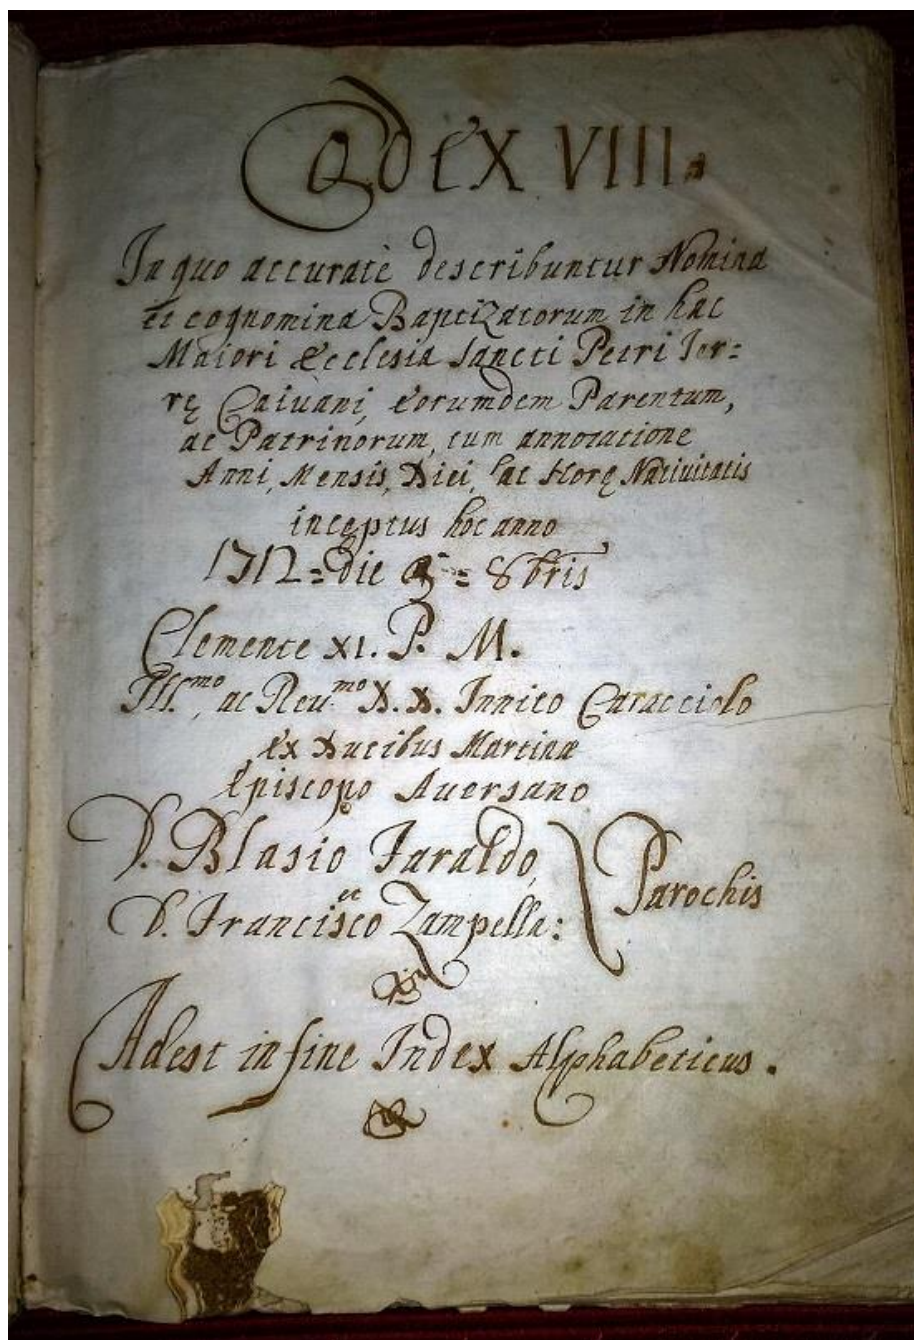 Codex VIIII.
In quo accuratè describuntur Nomina
et cognomina Baptizatorum in hac
Maiori Ecclesia Sancti Petri Ter=
rę Caiuani, eorumdem Parentum,
ac Patrinorum, cum annotatione
Anni, Mensis, Diei, ac Horę Natiuitatis
inceptus hoc anno
1712 = die = 8bris
Clemente XI. P. M.
Ill.mo, ac Reu.mo D. D. Innico Caracciolo
ex Ducibus Martinæ
Episcopo Auersano
D. Blasio Faraldo, Parochis
et
D. Francisco Zampella:
Adest in fine Index Alphabeticus.